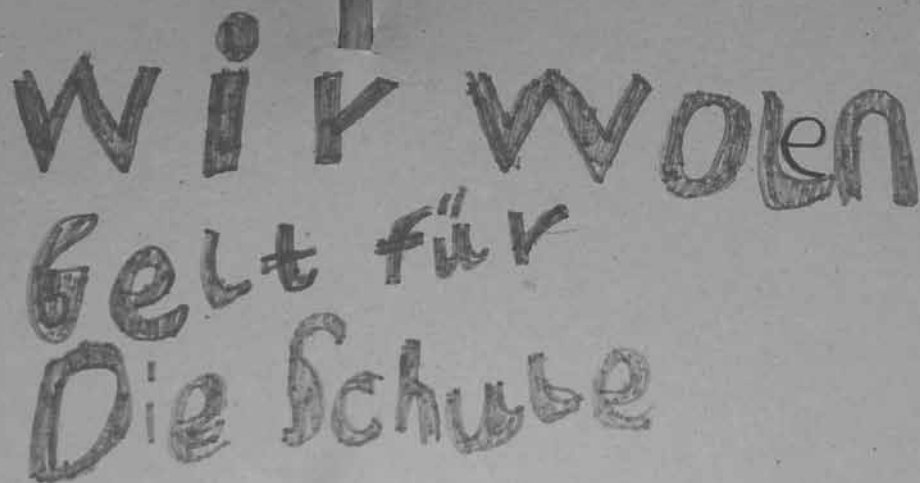 wir wolen
Gelt für
Die Schule